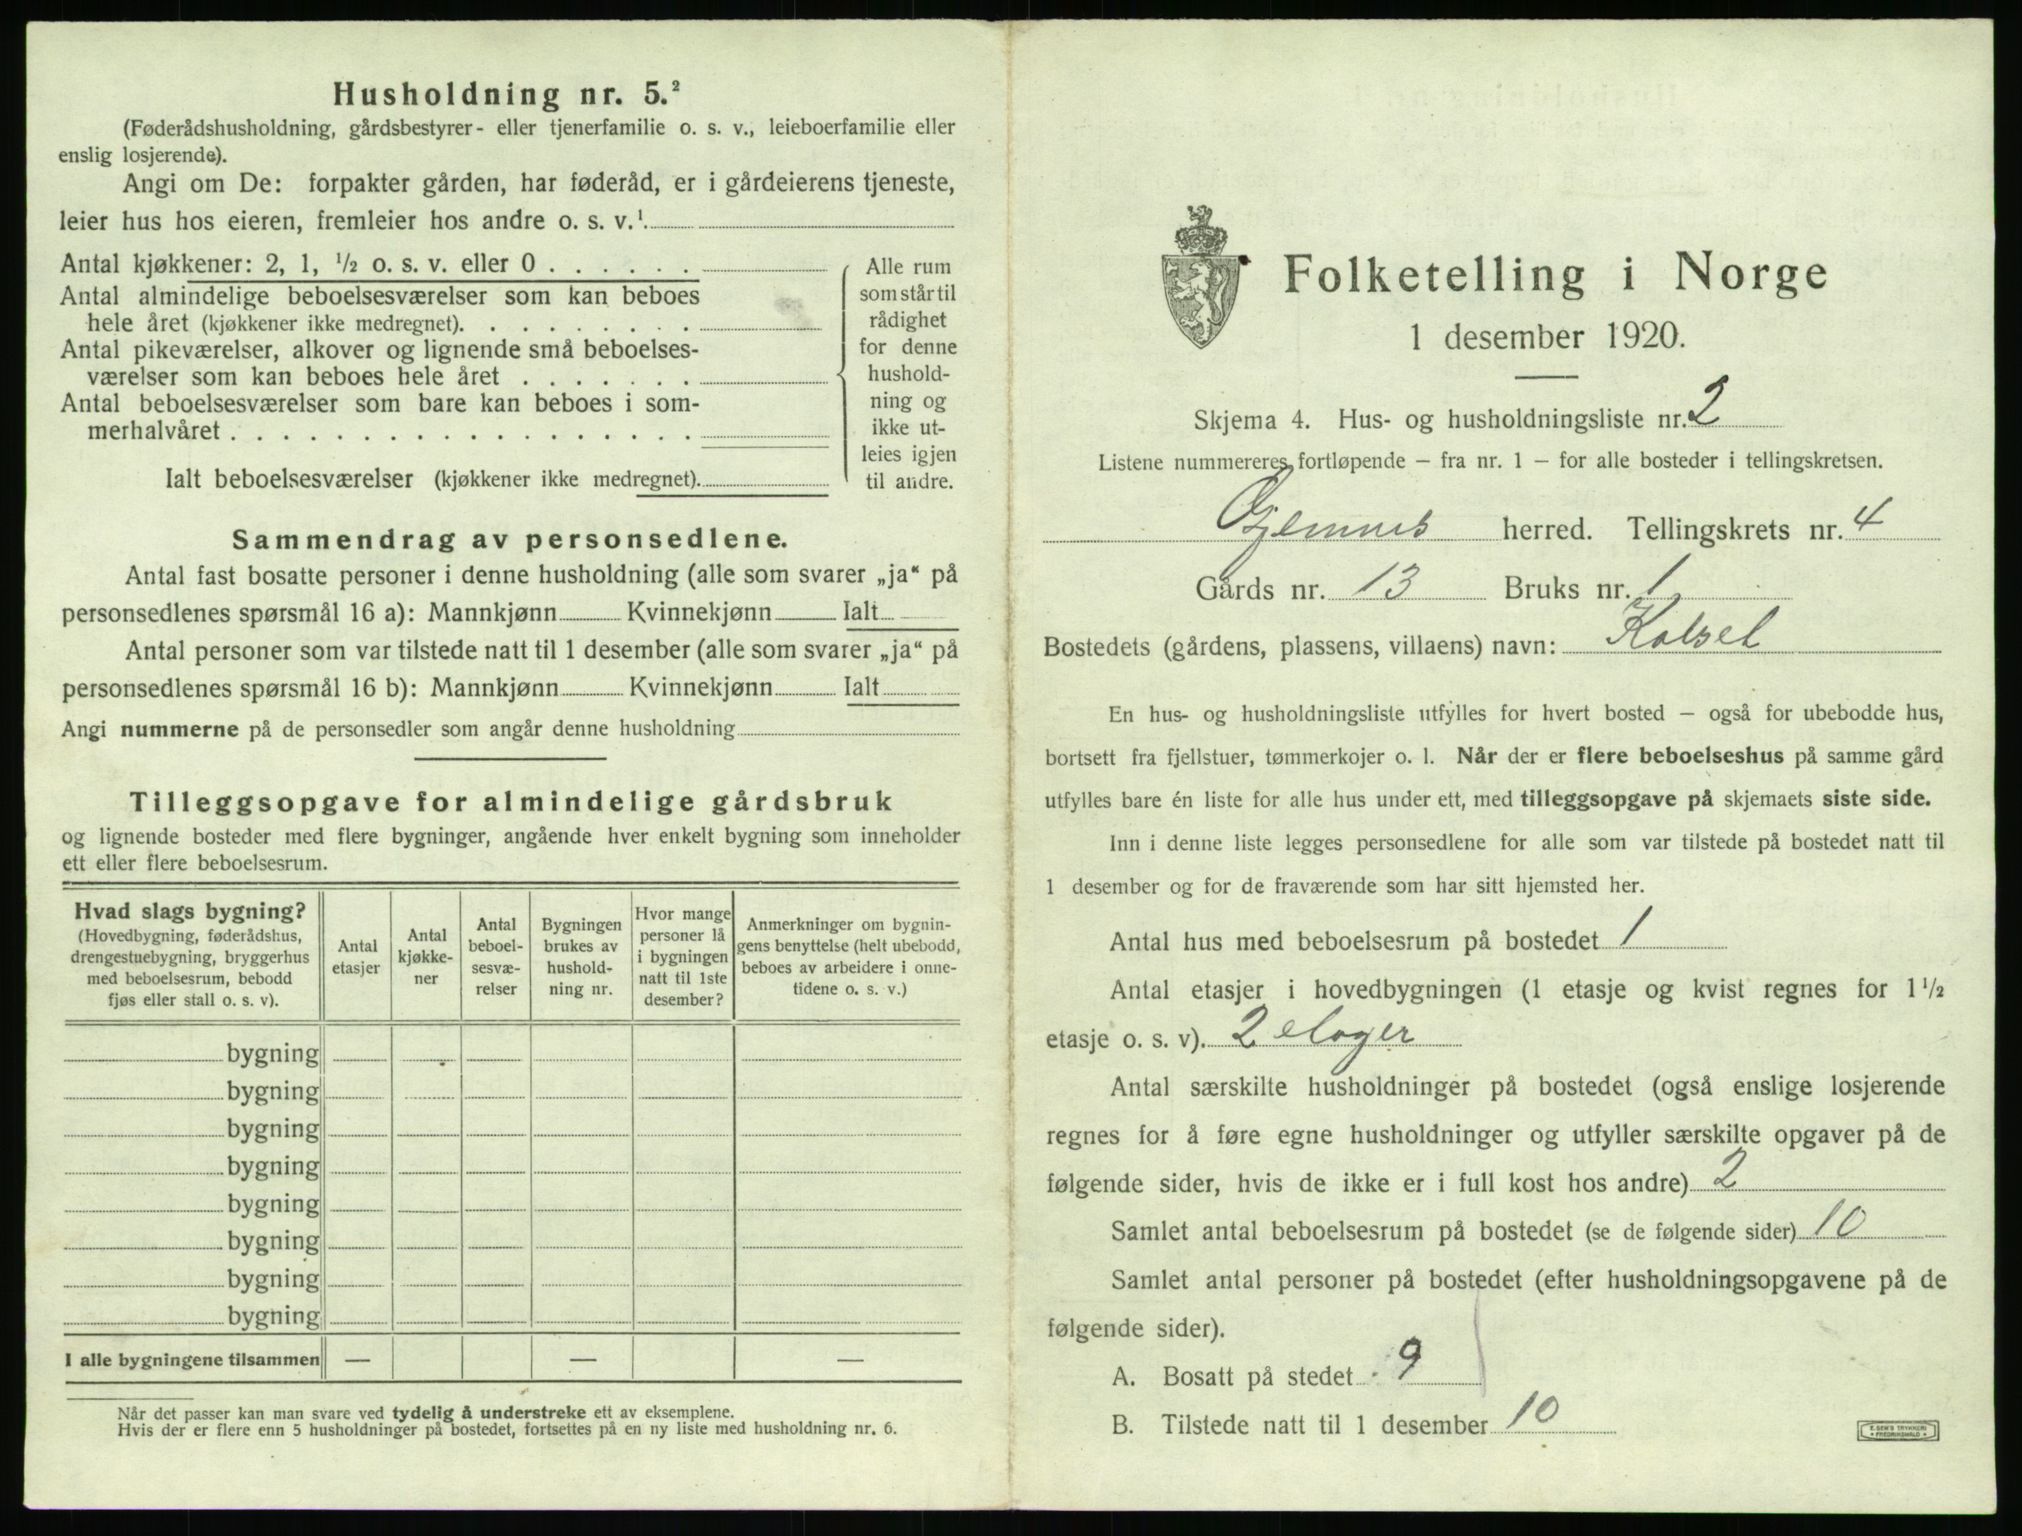 Husholdning nr. 5.²
(Føderådshusholdning, gårdsbestyrer- eller tjenerfamilie o. s. v., leieboerfamilie eller
enslig losjerende).
Angi om De: forpakter gården, har føderåd, er i gårdeierens tjeneste,
leier hus hos eieren, fremleier hos andre o. s. v.¹.
Antal kjøkkener: 2, 1, ½ o. s. v. eller 0 . . . . . .
Antal almindelige beboelsesværelser som kan beboes
hele året (kjøkkener ikke medregnet). . . . . . . . .
Antal pikeværelser, alkover og lignende små beboelses-
værelser som kan beboes hele året . . . . . . .
Antal beboelsesværelser som bare kan beboes i som-
merhalvåret . . . . . . . . . . . . . . . . . .
Ialt beboelsesværelser (kjøkkener ikke medregnet).
Alle rum
som står til
rådighet
for denne
hushold-
ning og
ikke ut-
leies igjen
til andre.
Sammendrag av personsedlene.
Antal fast bosatte personer i denne husholdning (alle som svarer „ja“ på
personsedlenes spørsmål 16 a): Mannkjønn Kvinnekjønn Ialt
Antal personer som var tilstede natt til 1 desember (alle som svarer „ja“ på
personsedlenes spørsmål 16 b): Mannkjønn Kvinnekjønn Ialt
Angi nummerne på de personsedler som angår denne husholdning
Tilleggsopgave for almindelige gårdsbruk
og lignende bosteder med flere bygninger, angående hver enkelt bygning som inneholder
ett eller flere beboelsesrum.
Hvad slags bygning?
(Hovedbygning, føderådshus,
drengestuebygning, bryggerhus
med beboelsesrum, bebodd
fjøs eller stall o. s. v).
Antal
etasjer
Antal
kjøkke-
ner
Antal
beboel-
sesvæ-
relser
Bygningen
brukes av
hushold-
ning nr.
Hvor mange
personer lå
i bygningen
natt til 1ste
desember?
Anmerkninger om bygnin-
gens benyttelse (helt ubebodd,
beboes av arbeidere i onne-
tidene o. s. v.)
bygning
bygning
bygning
bygning
bygning
bygning
bygning
bygning
I alle bygningene tilsammen — — —
Når det passer kan man svare ved tydelig å understreke ett av eksemplene.
Hvis der er flere enn 5 husholdninger på bostedet, fortsettes på en ny liste med husholdning nr. 6.
Folketelling i Norge
1 desember 1920.
Skjema 4. Hus- og husholdningsliste nr. 2
Listene nummereres fortløpende — fra nr. 1 — for alle bosteder i tellingskretsen.
Gjemnes herred. Tellingskrets nr. 4
Gårds nr. 13 Bruks nr. 1
Bostedets (gårdens, plassens, villaens) navn: Kolset
En hus- og husholdningsliste utfylles for hvert bosted — også for ubebodde hus,
bortsett fra fjellstuer, tømmerkojer o. l. Når der er flere beboelseshus på samme gård
utfylles bare én liste for alle hus under ett, med tilleggsopgave på skjemaets siste side.
Inn i denne liste legges personsedlene for alle som var tilstede på bostedet natt til
1 desember og for de fraværende som har sitt hjemsted her.
Antal hus med beboelsesrum på bostedet 1
Antal etasjer i hovedbygningen (1 etasje og kvist regnes for 1½
etasje o. s. v). 2 etager
Antal særskilte husholdninger på bostedet (også enslige losjerende
regnes for å føre egne husholdninger og utfyller særskilte opgaver på de
følgende sider, hvis de ikke er i full kost hos andre) 2
Samlet antal beboelsesrum på bostedet (se de følgende sider) 10
Samlet antal personer på bostedet (efter husholdningsopgavene på de
følgende sider).
A. Bosatt på stedet 9
B. Tilstede natt til 1 desember 10
E. SEM'S TRYKKERI
FREDRIKSHALD